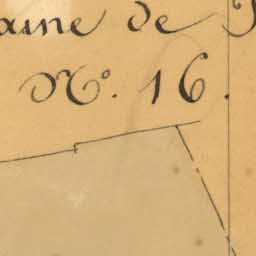 aine de
N°. 16.